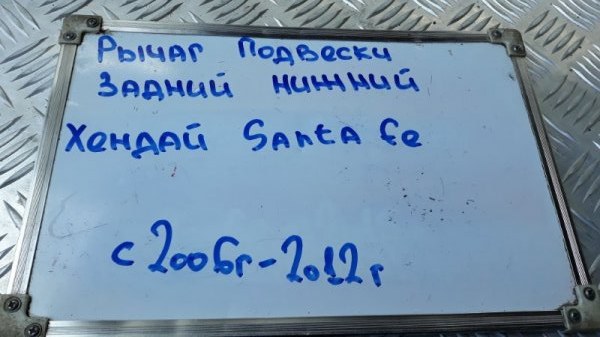 Рычаг подвески
задний нижний
Хендай Santa fe
с 2006г-2012г